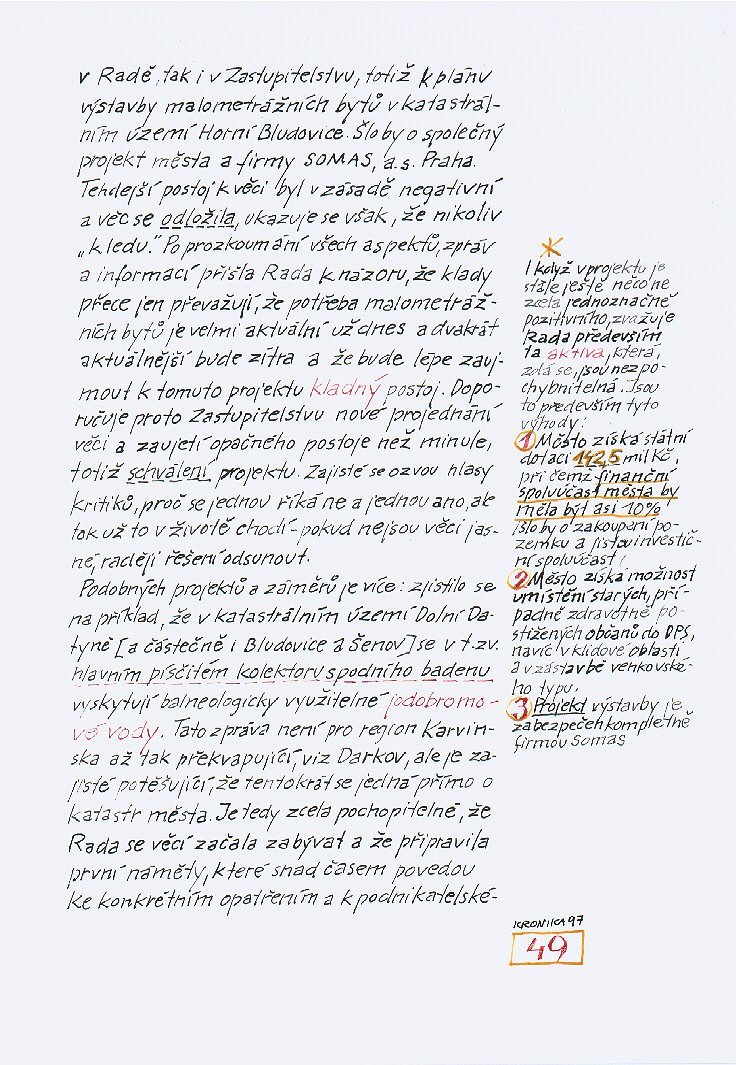 v Radě, tak i v Zastupitelstvu, totiž k plánu
výstavby malometrážních bytů v katastrál-
ním území Horní Bludovice. Šlo by o společný
projekt města a firmy SOMAS, a.s. Praha.
Tehdejší postoj k věci byl v zásadě negativní
a věc se odložila, ukazuje se však, že nikoliv
„k ledu.“ Po prozkoumání všech aspektů, zpráv
a informací přišla Rada k názoru, že klady
přece jen převažují, že potřeba malometráž-
ních bytů je velmi aktuální už dnes a dvakrát
aktuálnější bude zítra a že bude lépe zauj-
mout k tomuto projektu kladný postoj. Dopo-
ručuje proto Zastupitelstvu nové projednání
věci a zaujetí opačného postoje než minule,
totiž schválení projektu. Zajisté se ozvou hlasy
kritiků, proč se jednou říká ne a jednou ano, ale
tak už to v životě chodí - pokud nejsou věci jas-
né, raději řešení odsunout.
Podobných projektů a záměrů je více: zjistilo se
na příklad, že v katastrálním území Dolní Da-
tyně [a částečně i Bludovice a Šenov] se v t.zv.
hlavním písčitém kolektoru spodního badenu
vyskytují balneologicky využitelné jodobromo-
vé vody. Tato zpráva není pro region Karvin-
ska až tak překvapující, viz Darkov, ale je za-
jisté potěšující, že tentokrát se jedná přímo o
katastr města. Je tedy zcela pochopitelné, že
Rada se věcí začala zabývat a že připravila
první náměty, které snad časem povedou
ke konkrétním opatřením a k podnikatelské-
*
I když v projektu je
stále ještě něco ne
zcela jednoznačně
pozitivního, zvažuje
Rada především
ta aktiva, která,
zdá se, jsou nezpo-
chybnitelná. Jsou
to především tyto
výhody:
1 Město získá státní
dotaci 142,5 mil Kč,
při čemž finanční
spoluúčast města by
měla být asi 10%
/šlo by o zakoupení po-
zemku a jistou investič-
ní spoluúčast/
2 Město získá možnost
umístění starých, pří-
padně zdravotně po-
stižených občanů do DPS,
navíc v klidové oblasti
a v zástavbě venkovské-
ho typu.
3 Projekt výstavby je
zabezpečen kompletně
firmou Somas
KRONIKA 97
49